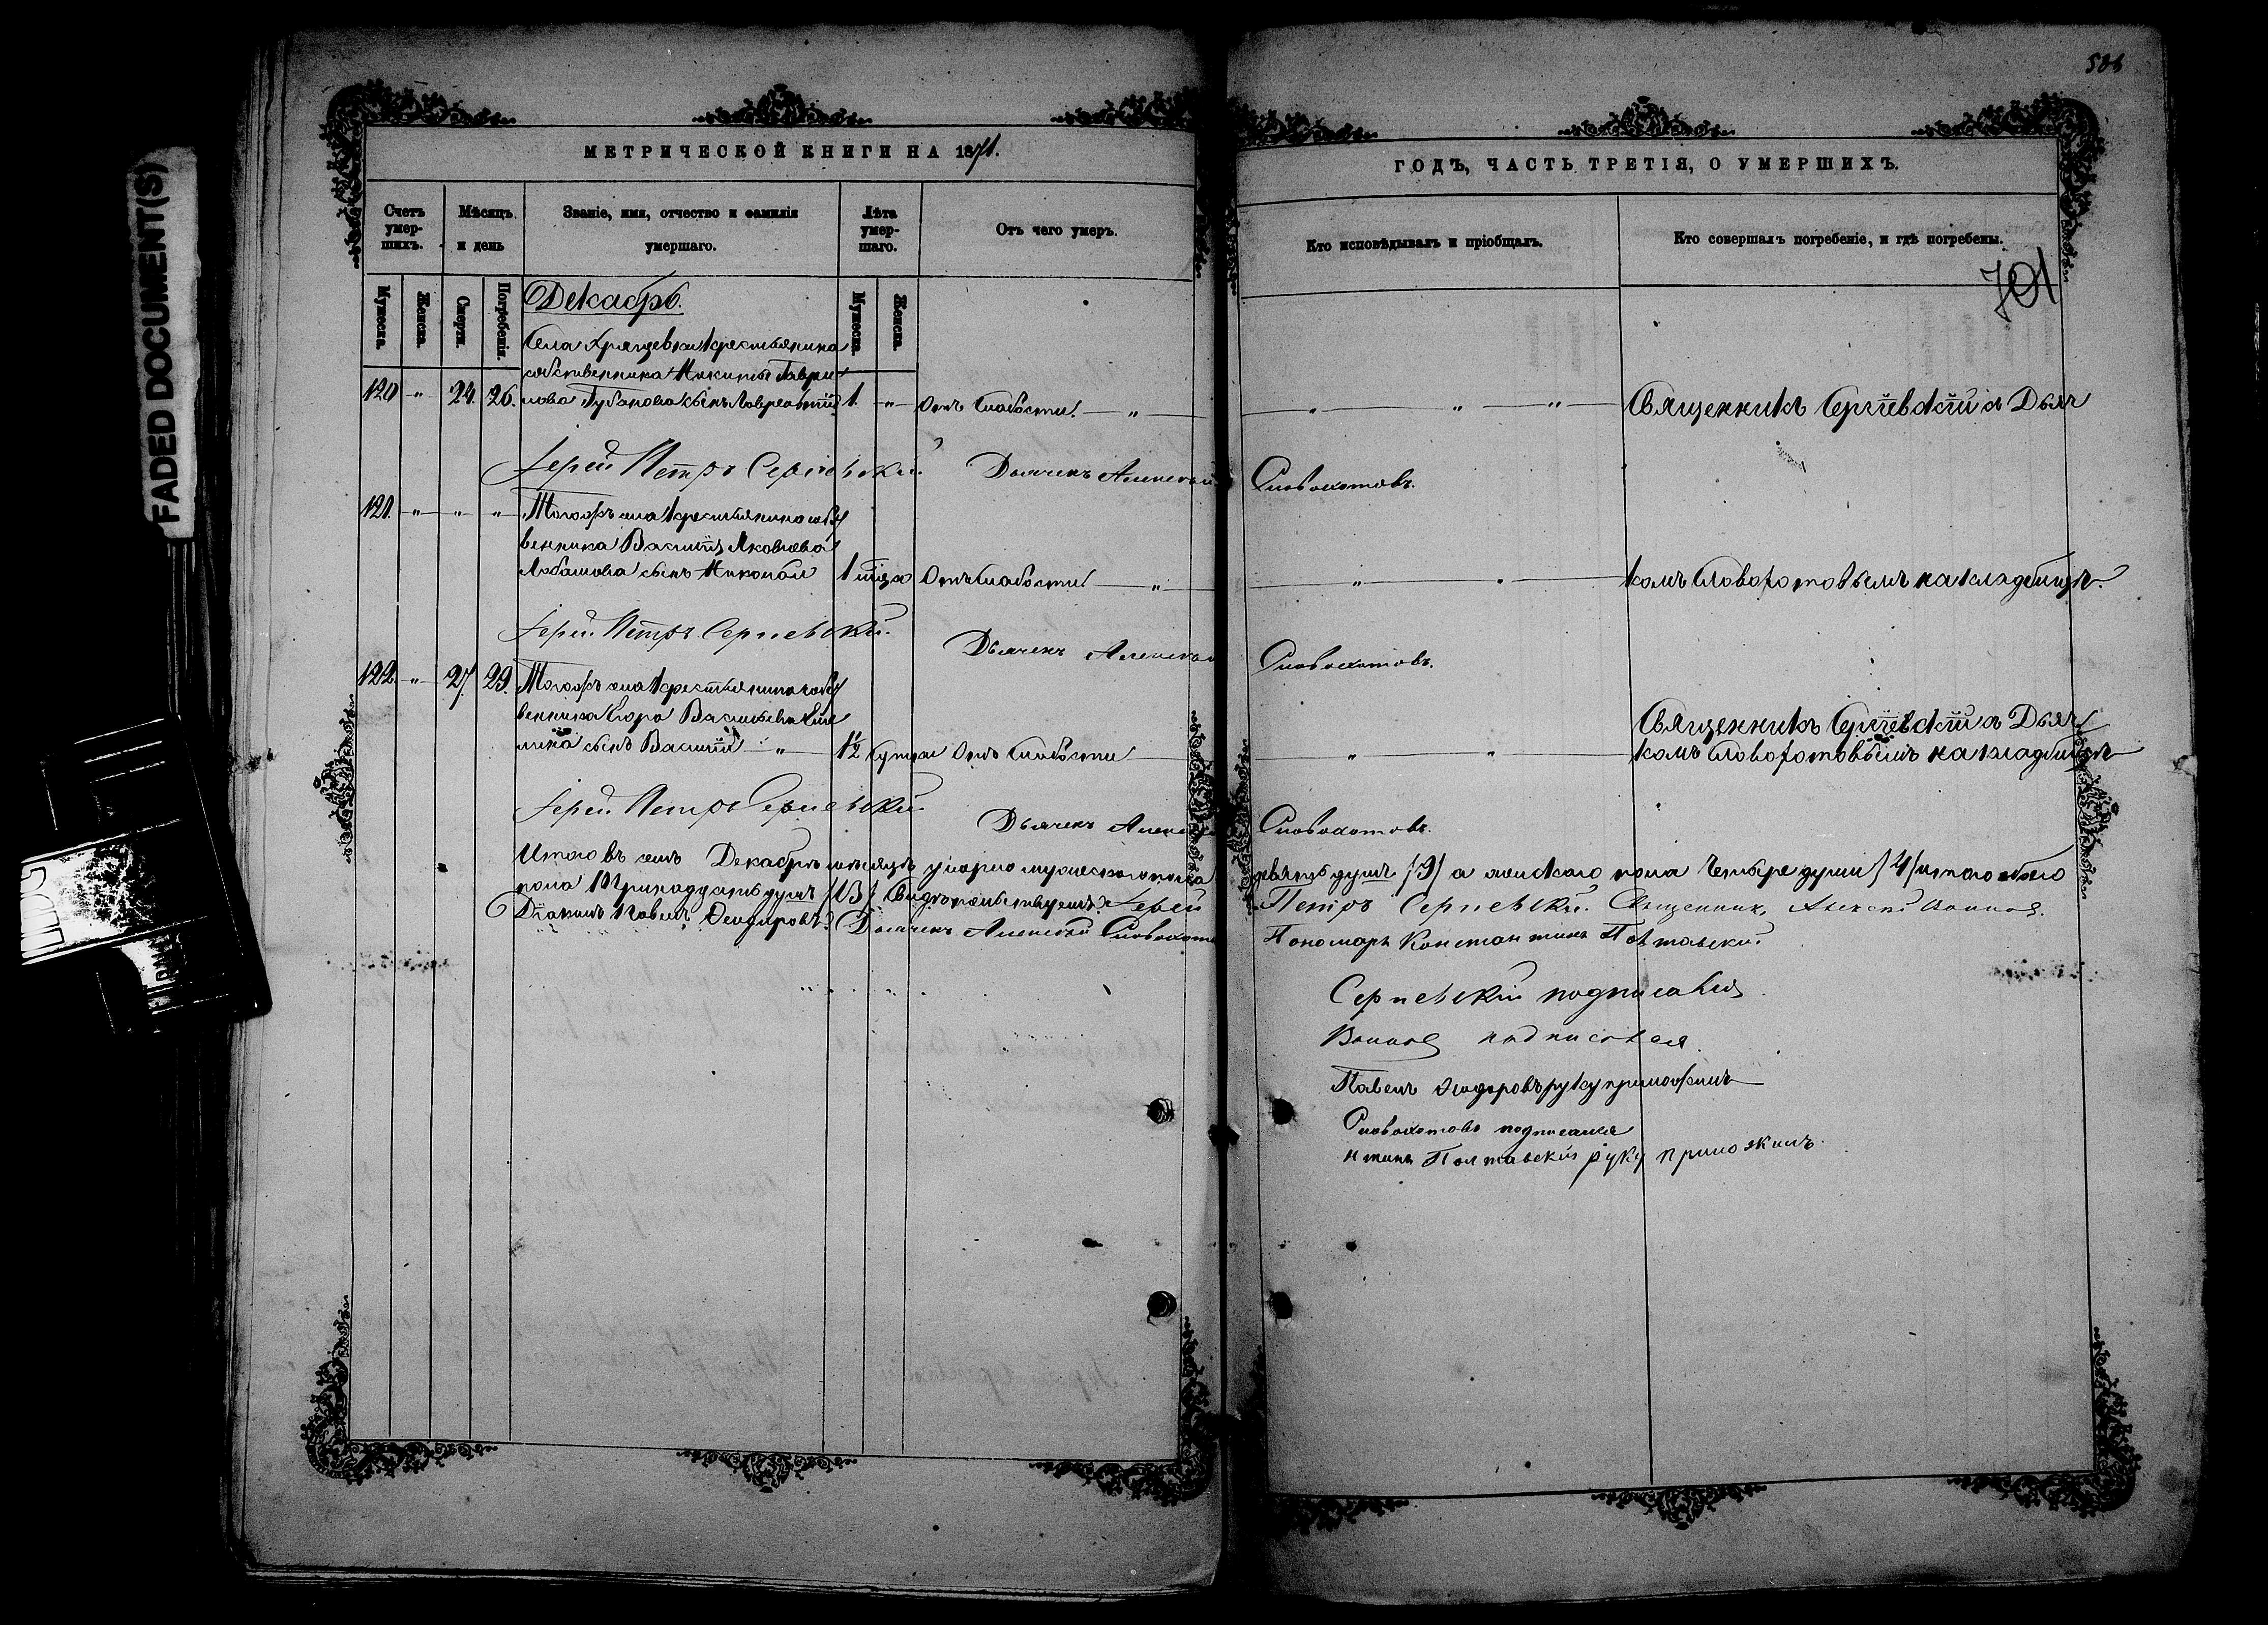 586
FADED DOCUMENT(S)
МЕТРИЧЕСКОЙ КНИГИ НА 1871.
Счетъ умер-шихъ.
Мѣсяцъ и день
Званіе, имя, отчество и фамилія умершаго.
Лѣта умер-шаго.
Отъ чего умеръ.
Мужеска.
Женска.
Смерти.
Погребенія.
Мужеска.
Женска.
Декабрь.
Села Хрящевки крестьянина
собственника Никиты Гаври
120 " 24. 26. лова Губанова сынъ Лаврентій 1. " Отъ слабости. "
Іерей Петръ Сергіевскій. Дьячекъ Алексѣй
121. " " " Тогожъ села крестьянина собст
венника Василія Яковлева
сынъ Николай 1 мѣсяца Отъ слабости "
Іерей Петръ Сергіевскій. Дьячекъ Алексѣй
122. " 27. 29. Тогожъ села крестьянина собст
венника Васильева
сынъ Василій " 1½ Отъ слабости
Іерей Петръ Сергіевскій Дьячекъ Алексѣй
Итого въ семъ Декабрѣ мѣсяцѣ умерло мужескаго пола
пола тринадцать душъ /13/. Свидѣтельствуемъ: Іерей
Діаконъ Павелъ Ѳеодоровъ. Дьячекъ Алексѣй Словохотовъ
ГОДЪ, ЧАСТЬ ТРЕТІЯ, О УМЕРШИХЪ.
Кто исповѣдывалъ и пріобщалъ.
Кто совершалъ погребеніе, и гдѣ погребены.
701
" " " Священникъ Сергіевскій съ Дьяч
Словохотовъ.
" " комъ Словохотовымъ на кладбищѣ.
Словохотовъ.
Священникъ Сергіевскій съ Дьяч
" " комъ Словохотовымъ на кладбищѣ
Словохотовъ.
девять душъ /9/ а женскаго пола четыре души /4/ итого обоего
Петръ Сергіевскій. Священникъ Алексѣй
Пономарь Константинъ Полтавскій
Сергіевскій подписался
подписался
Павелъ Ѳеодоровъ руку приложилъ
Словохотовъ подписался
Полтавскій руку приложилъ.